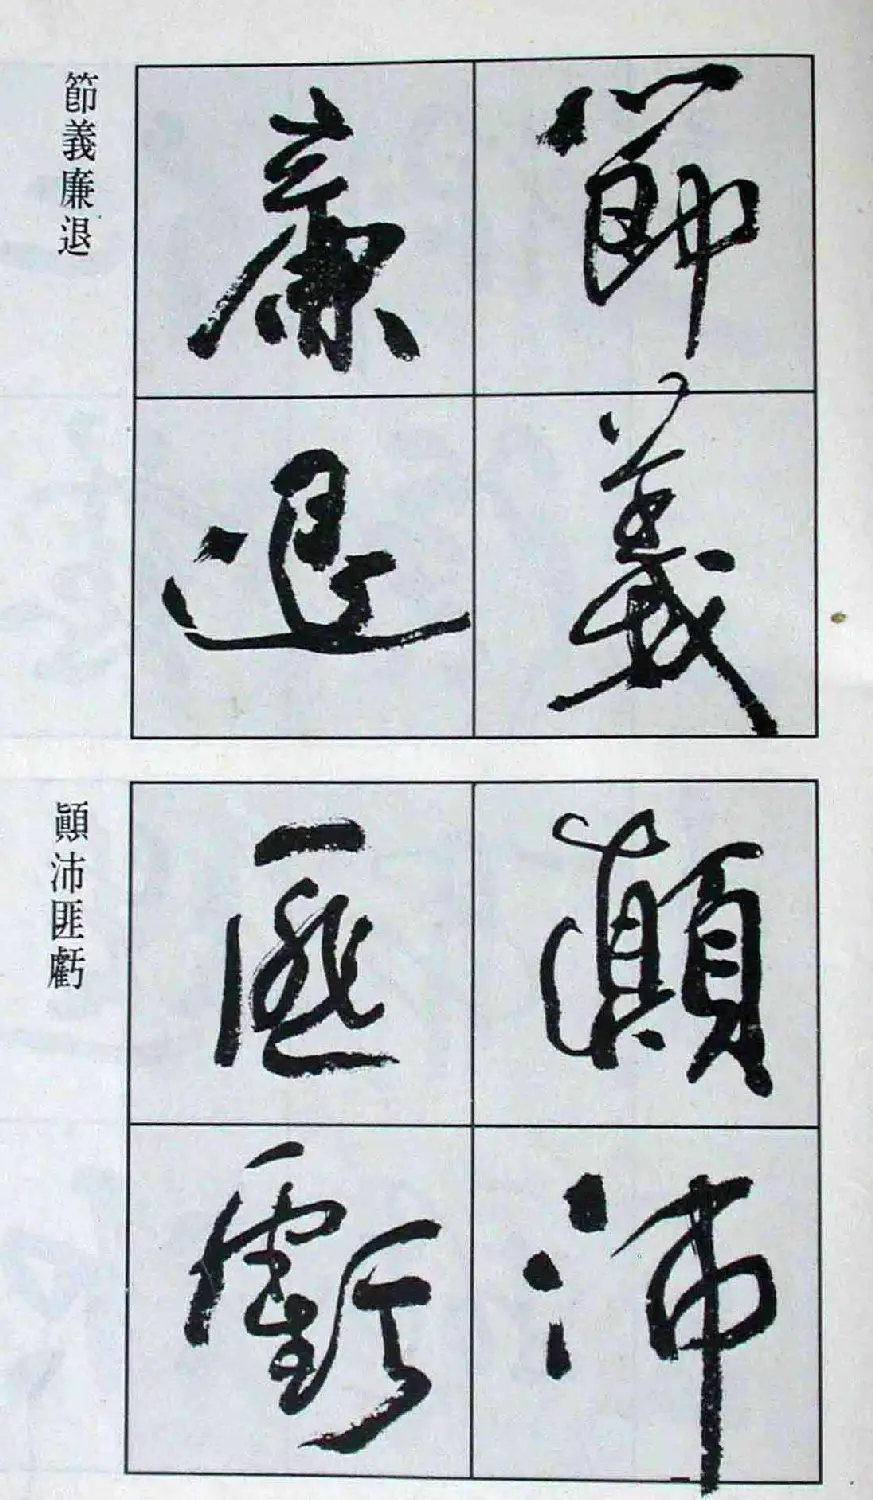 節義
廉退
節義廉退
顛沛
匪虧
顛沛匪虧